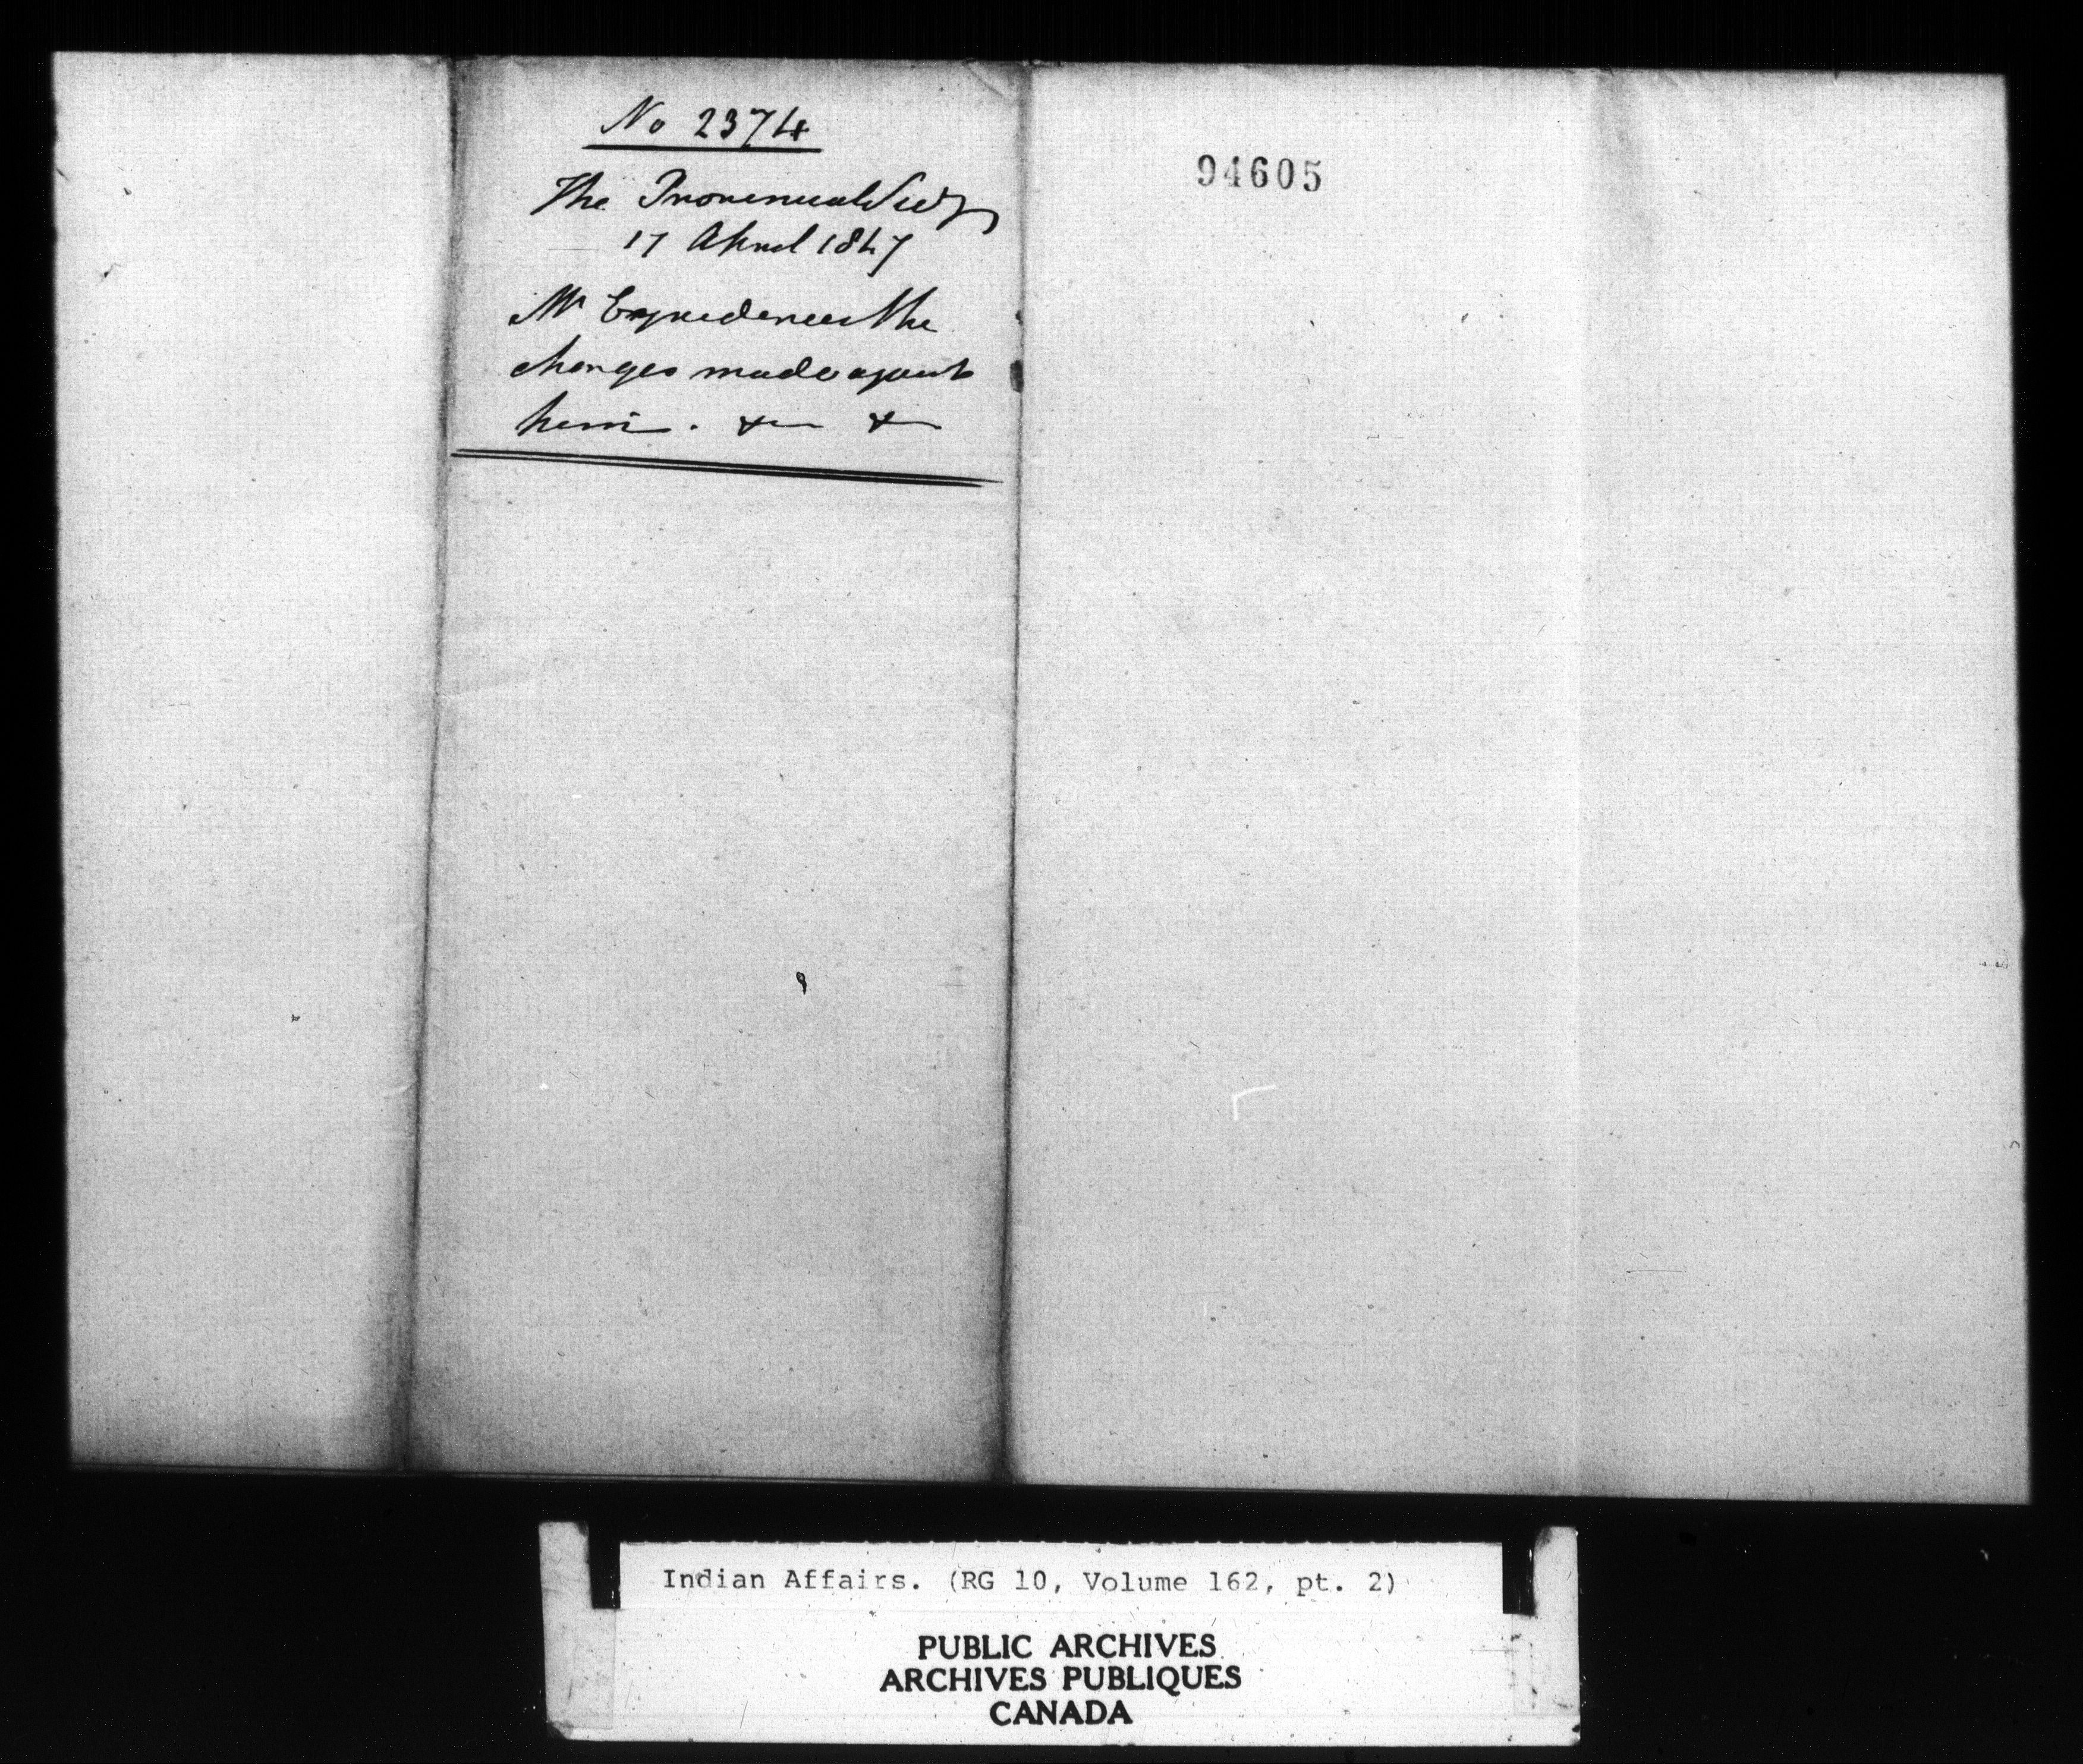 No 2374
The Provincial Secy
17 April 1847
Mr the
charges made against
him . &c &c
94605
Indian Affairs. (RG 10, Volume 162, pt. 2)
PUBLIC ARCHIVES
ARCHIVES PUBLIQUES
CANADA